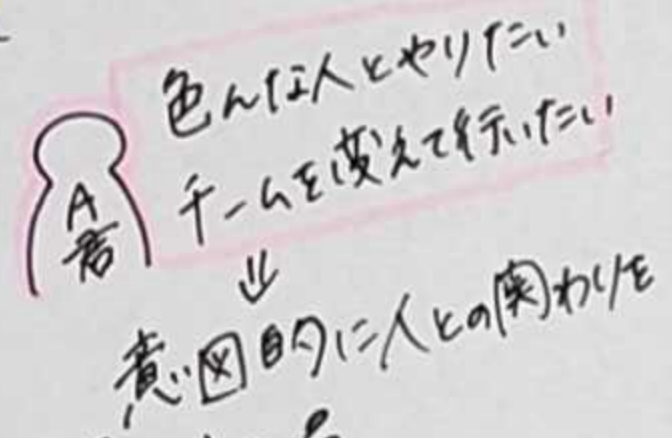 色んな人とやりたい
チームを変えて行いたい
A君
⇓
意図的に人との関わりを